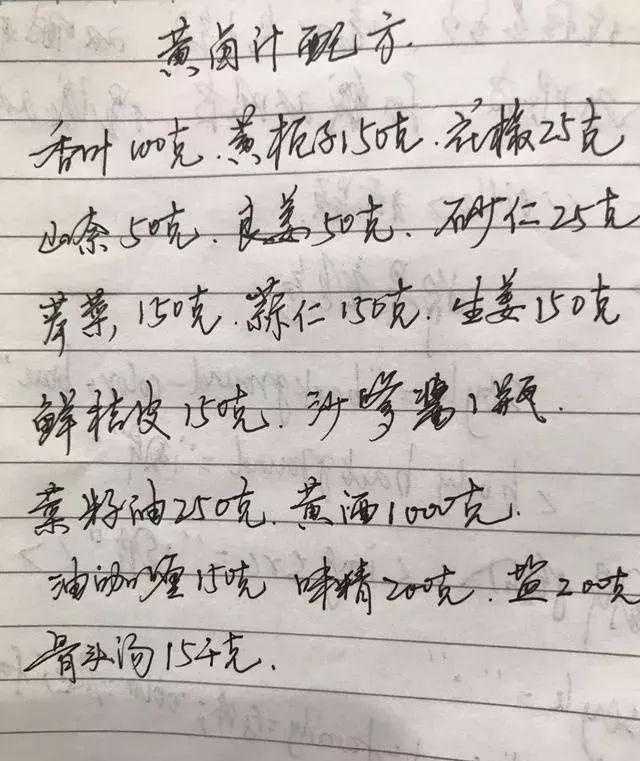 黄卤汁配方.
香叶100克.黄栀子150克.花椒25克
山奈50克.良姜50克.砂仁25克
芹菜150克.蒜仁150克.生姜150克
鲜桔皮150克.沙爹酱1瓶.
菜籽油250克.黄酒1000克.
油咖喱150克 味精200克.盐200克
骨头汤15千克.